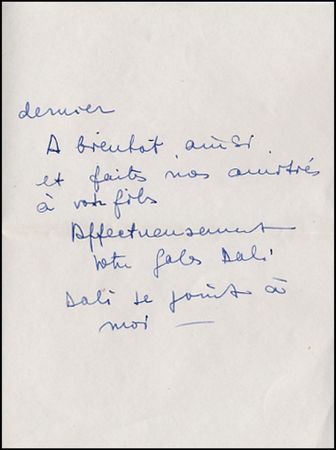 dernier
A bientôt ainsi
et faites nos amitiés
à votre fils
Affectueusement
Votre Gala Dali
Dali se joint à
moi —